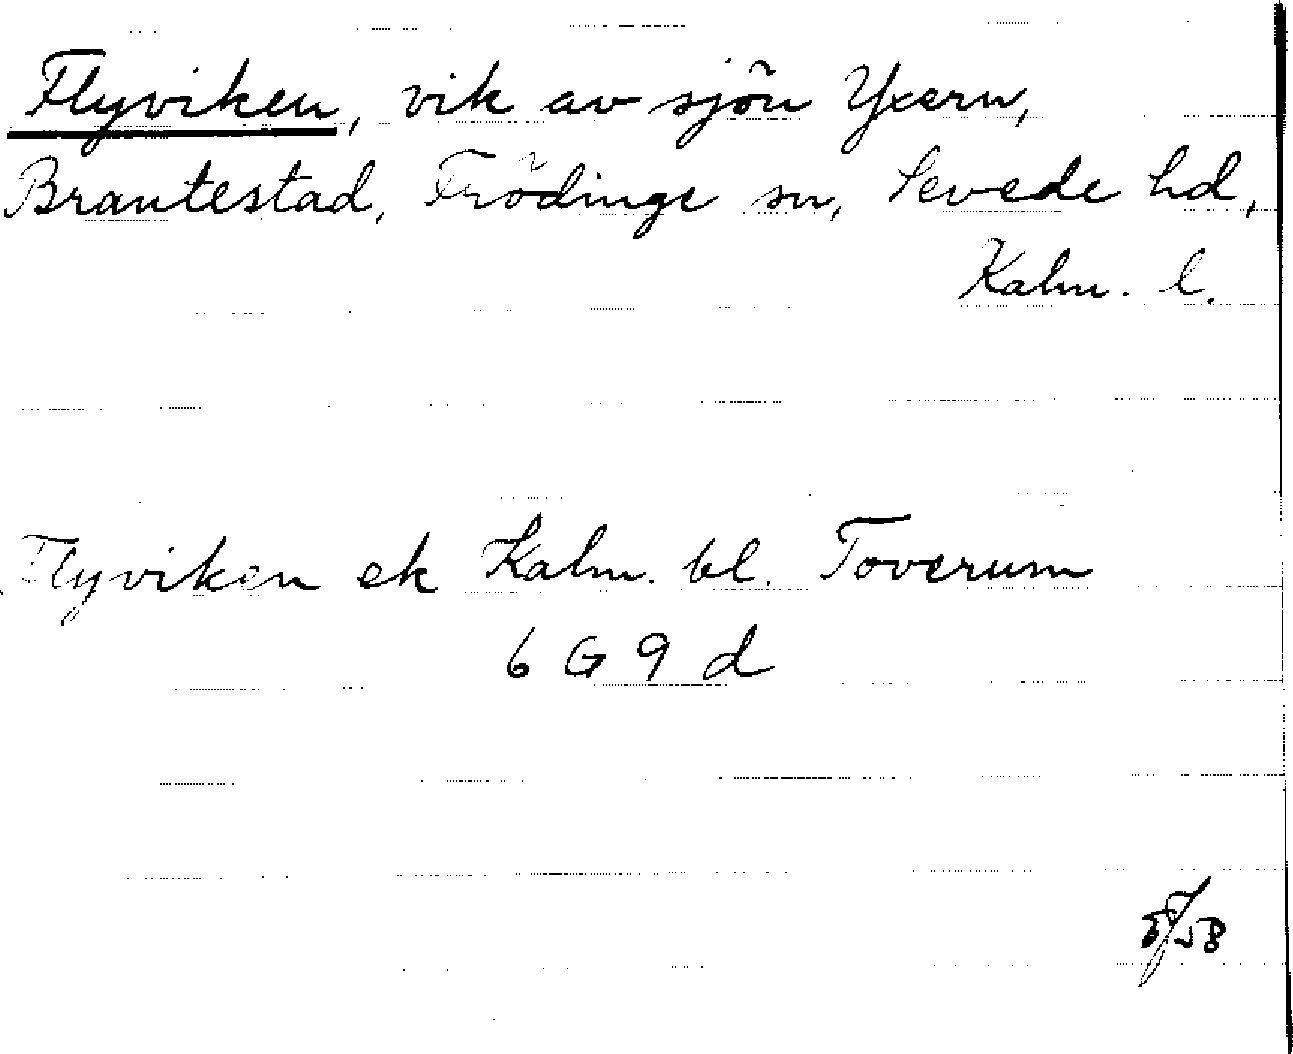 Flyviken, vik av sjön Yxern,
Brantestad, Frödinge sn, Sevede hd,
Kalm. l.
Flyviken ek Kalm. bl. Toverum
6 G 9 d